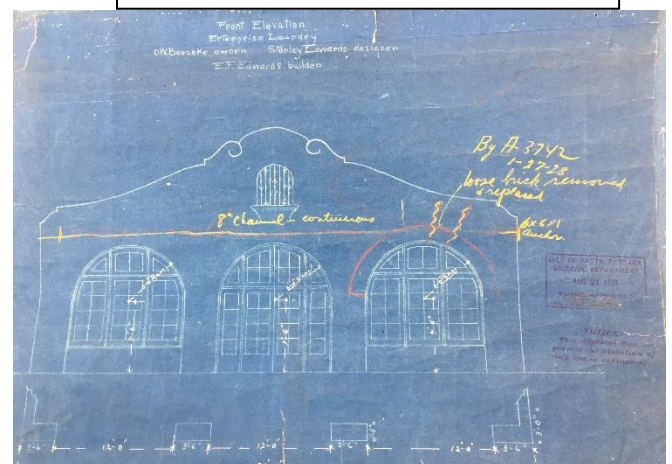 Front Elevation
Enterprise Laundry
O.W. Boeseke owner Stanley Edwards designer
E.F. Edwards builder
By A-3742
1-27-28
loose brick removed
& replaced
8" Channel - continuous
6x6x1
anchor.
CITY OF SANTA BARBARA
BUILDING DEPARTMENT
AUG 21 1925
NOTICE
This approval does not
permit the violation of
any law or ordinance.
3'-6" 12'-0" 3'-6" 12'-0" 12'-0" 3'-6" 3'-0"